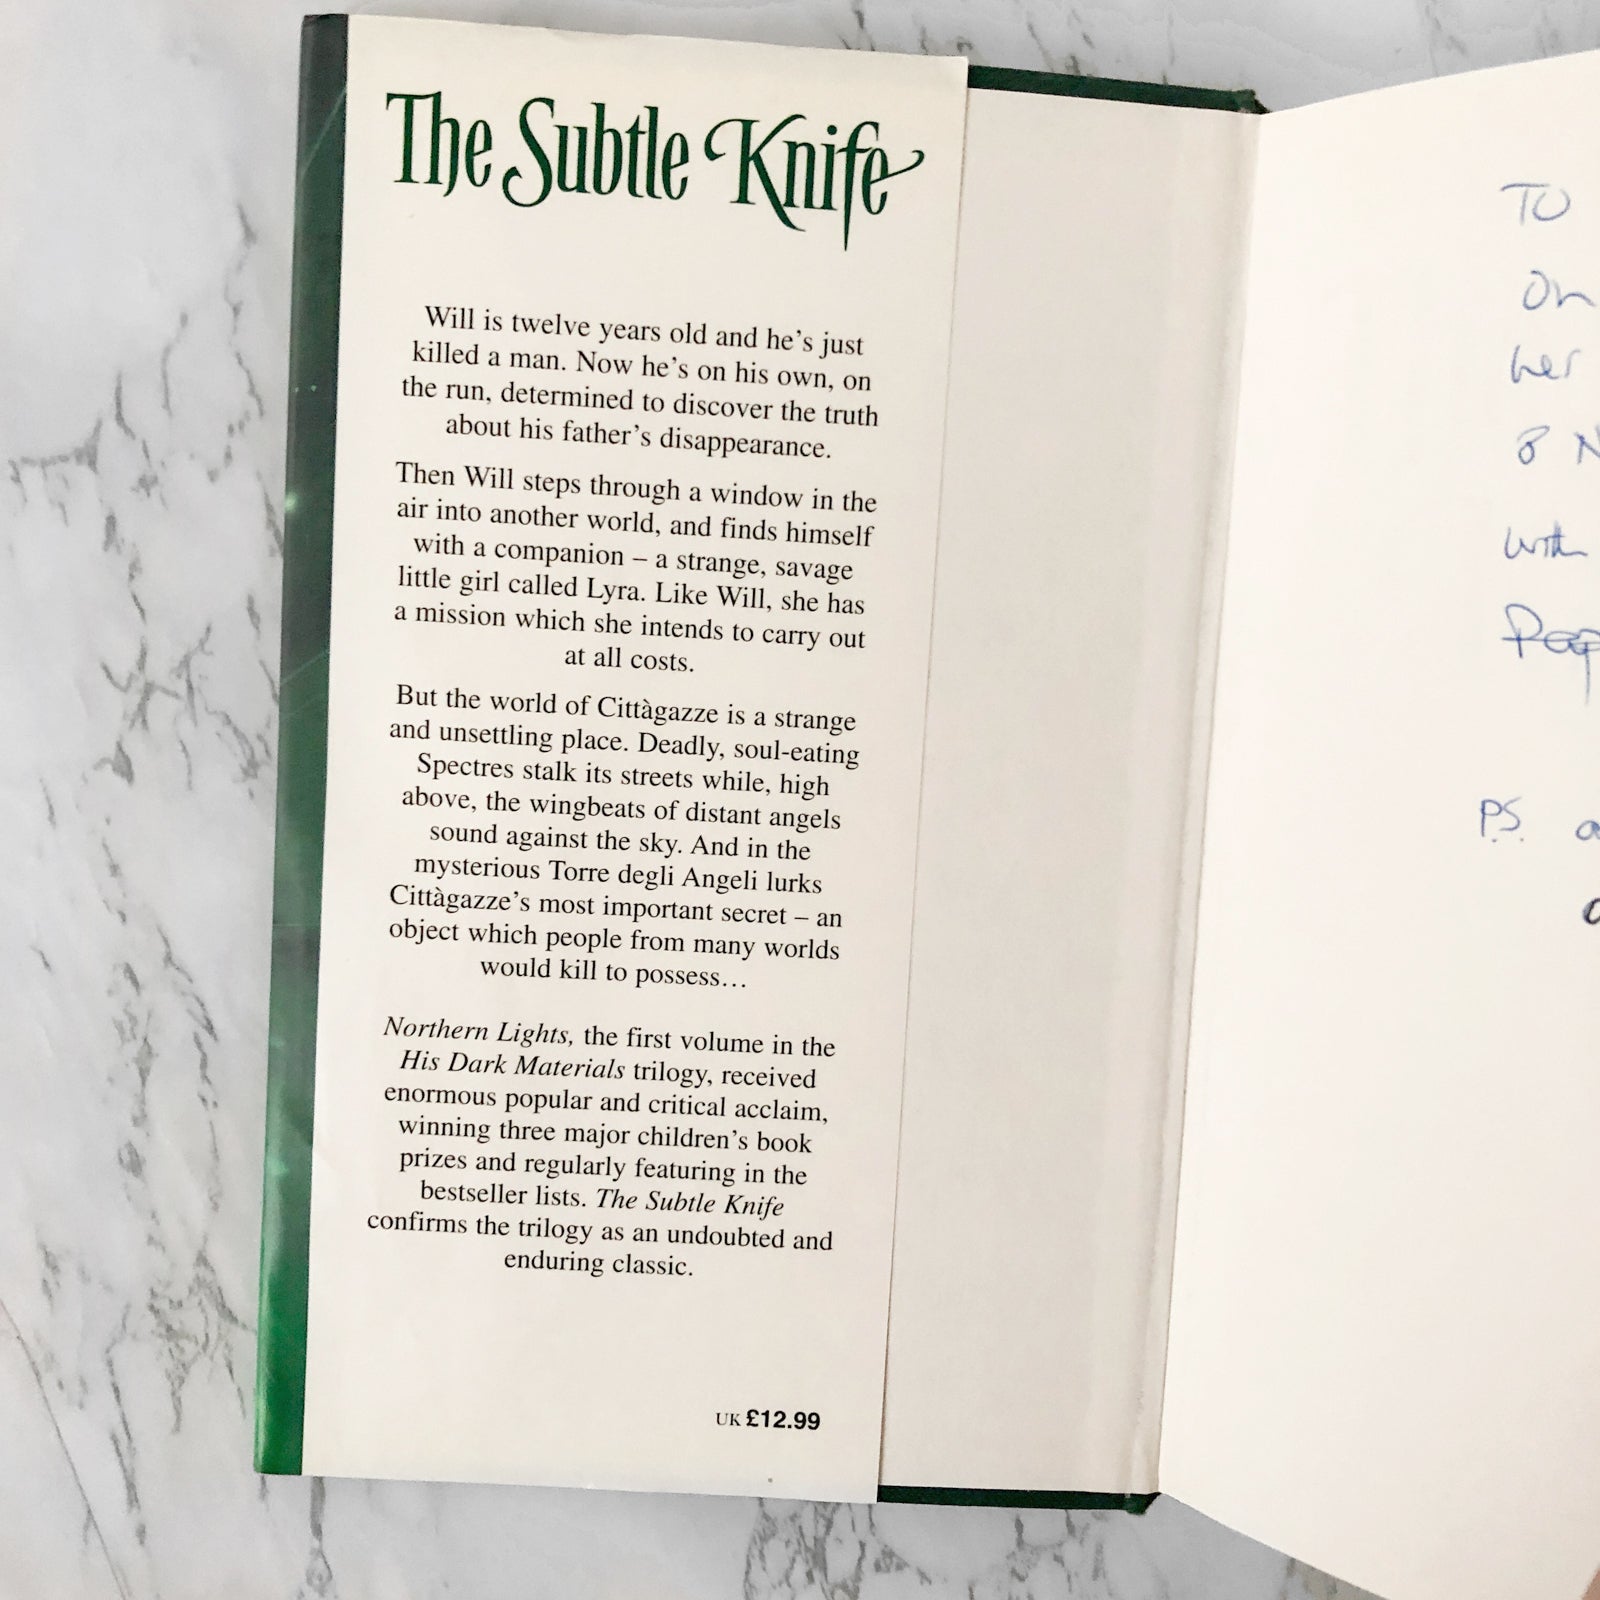 The Subtle Knife
Will is twelve years old and he's just
killed a man. Now he's on his own, on
the run, determined to discover the truth
about his father's disappearance.
Then Will steps through a window in the
air into another world, and finds himself
with a companion – a strange, savage
little girl called Lyra. Like Will, she has
a mission which she intends to carry out
at all costs.
But the world of Cittàgazze is a strange
and unsettling place. Deadly, soul-eating
Spectres stalk its streets while, high
above, the wingbeats of distant angels
sound against the sky. And in the
mysterious Torre degli Angeli lurks
Cittàgazze's most important secret – an
object which people from many worlds
would kill to possess…
Northern Lights, the first volume in the
His Dark Materials trilogy, received
enormous popular and critical acclaim,
winning three major children's book
prizes and regularly featuring in the
bestseller lists. The Subtle Knife
confirms the trilogy as an undoubted and
enduring classic.
UK £12.99
TO
On
her
8 N
with
P.S.